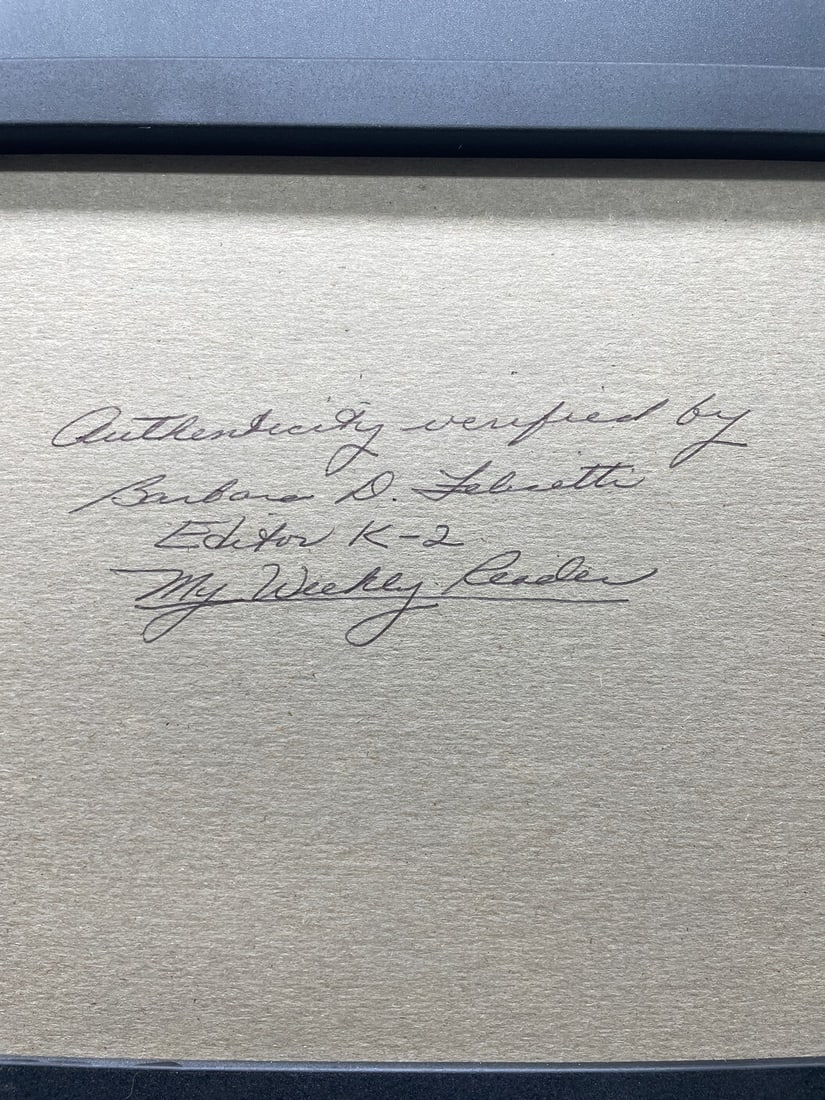 Authenticity verified by
Barbara D.
Editor K-2
My Weekly Reader